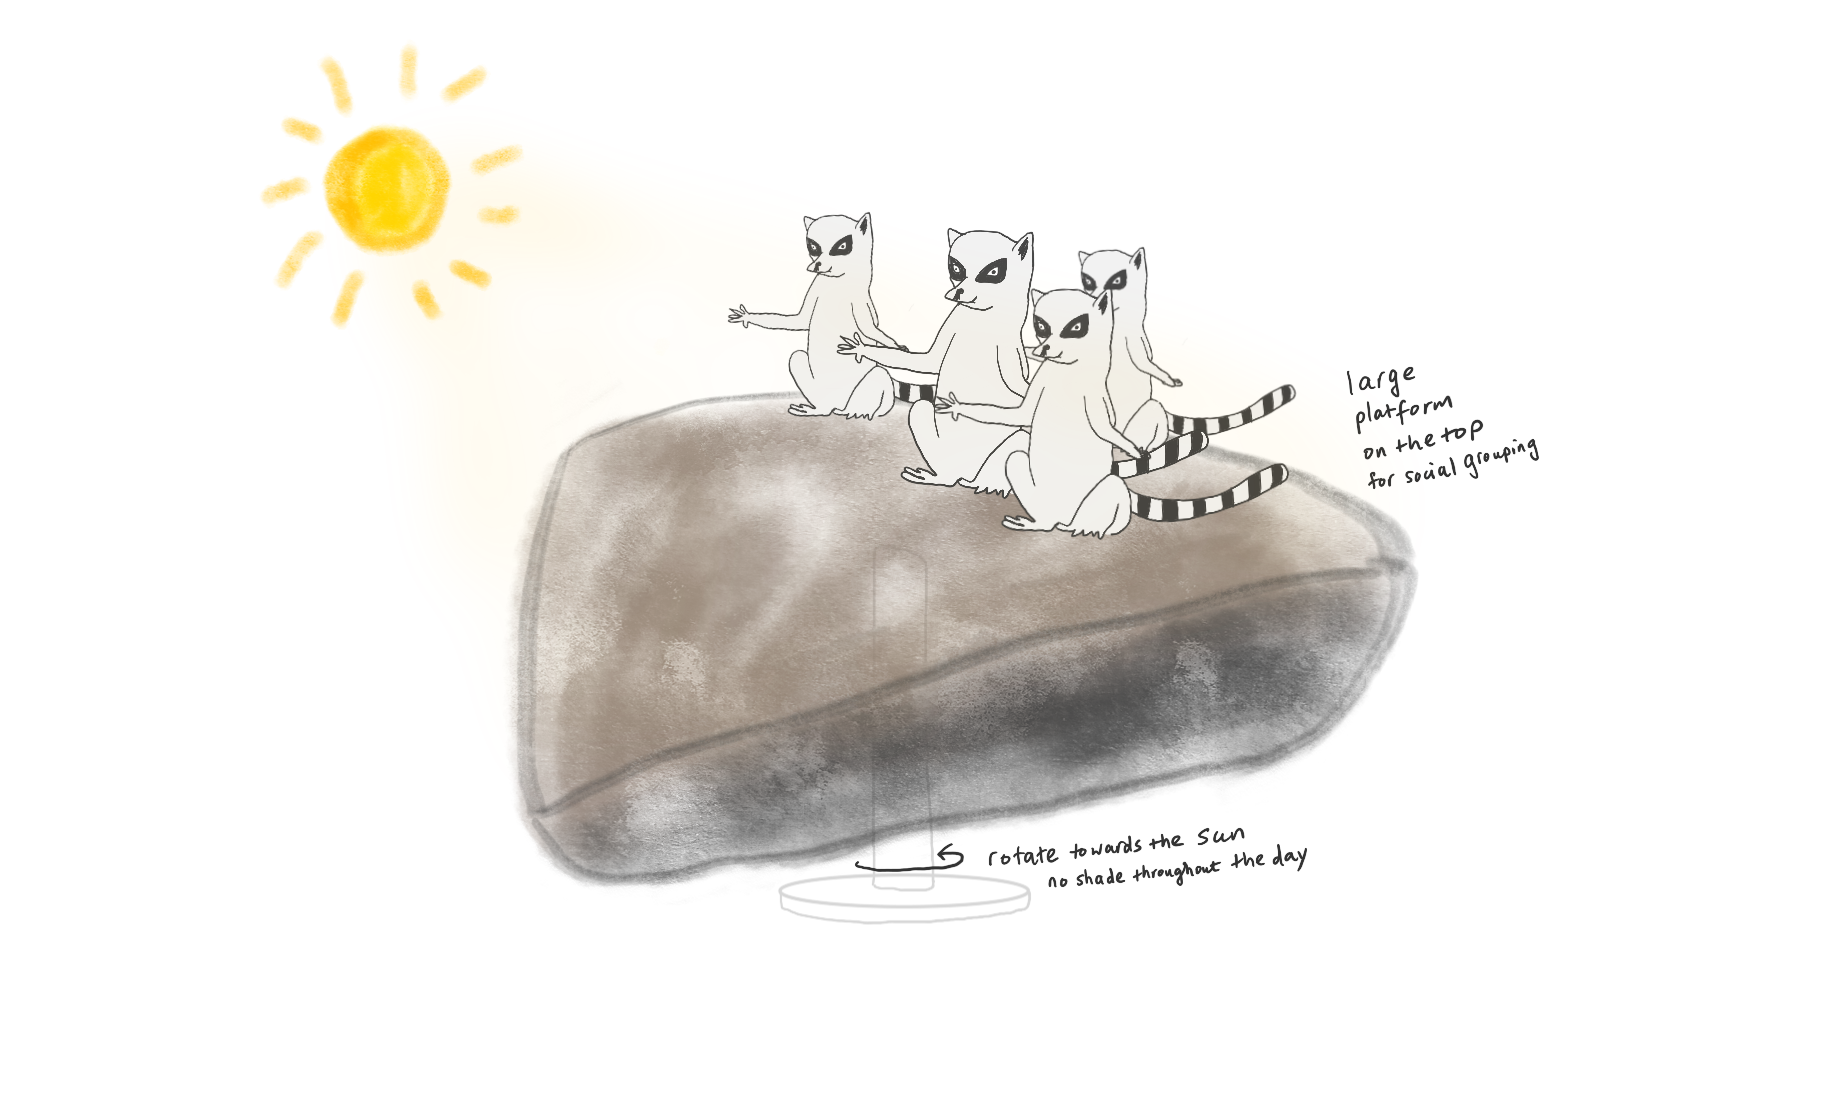 large
platform
on the top
for social grouping
rotate towards the sun
no shade throughout the day